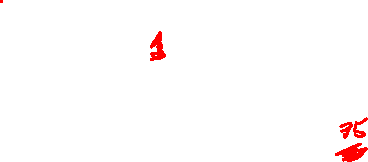 1
75